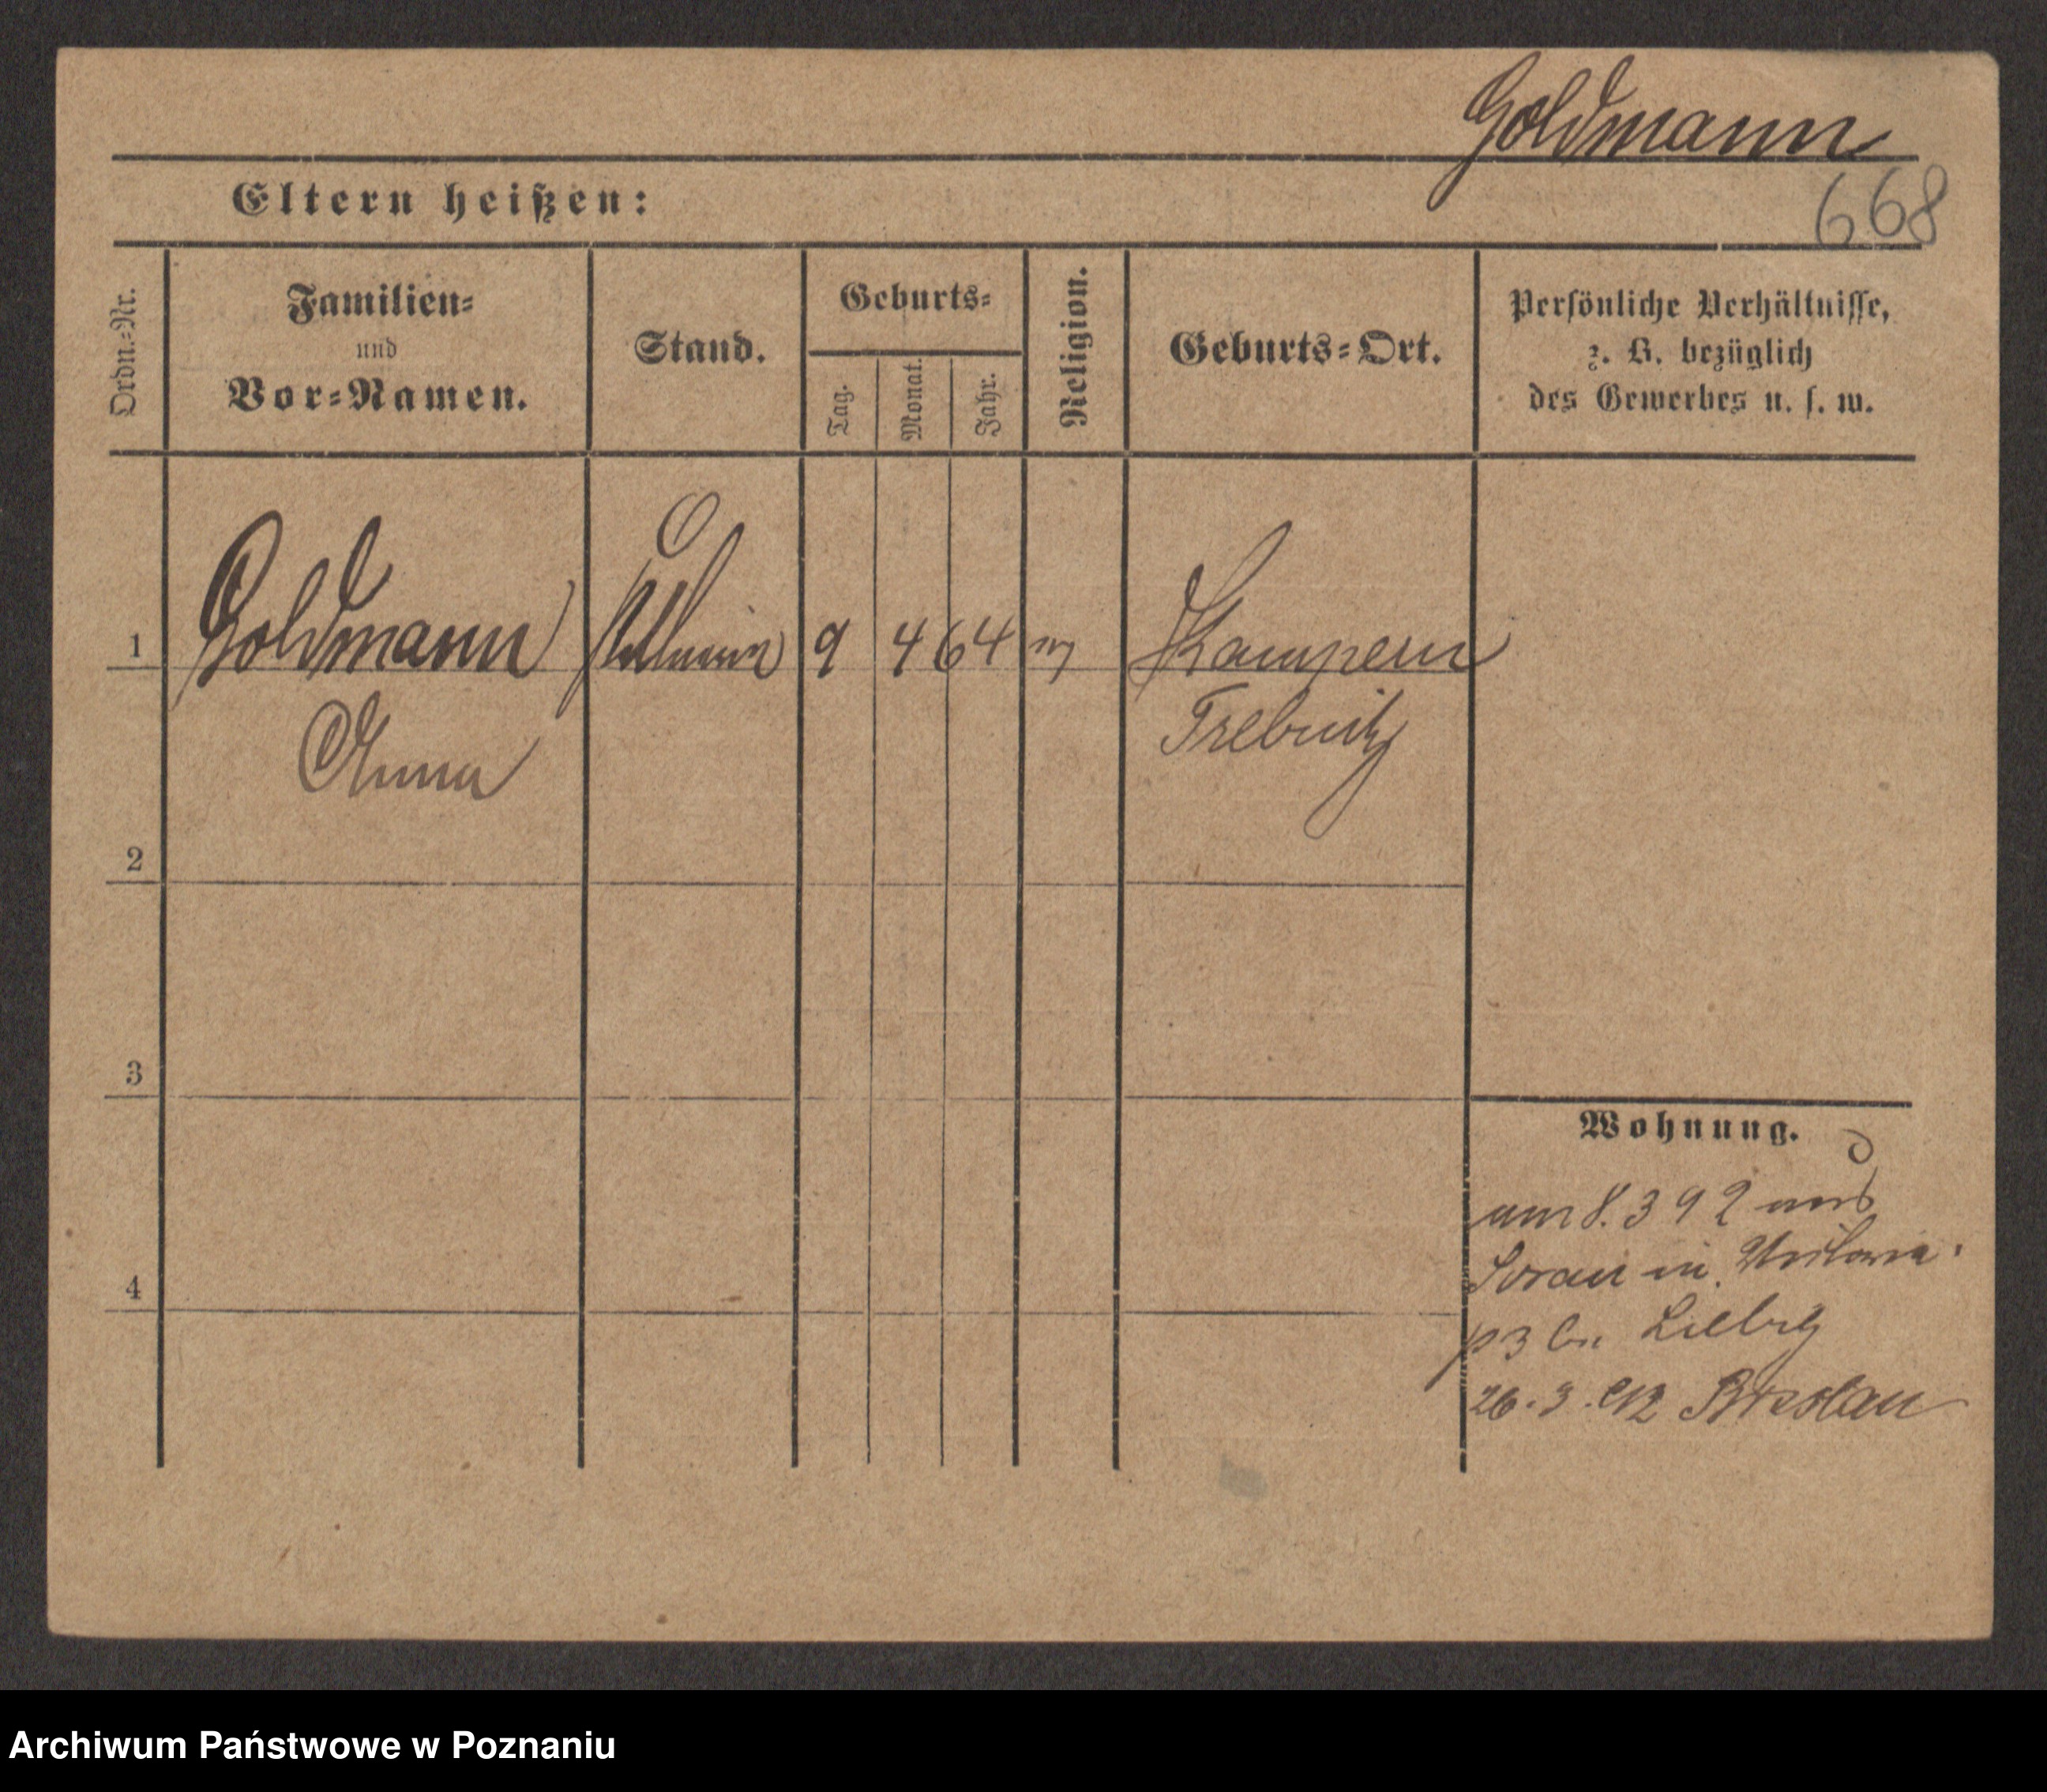 Goldmann
668
Eltern heißen:
Ordn.-Nr.
Familien-
und
Vor-Namen.
Stand.
Geburts-
Tag.
Monat.
Jahr.
Religion.
Geburts-Ort.
Persönliche Verhältnisse,
z. B. bezüglich
des Gewerbes u. s. w.
1 Goldmann Kellnerin 9 4 64 Kampern
Anna Trebnitz
2
3
4
Wohnung.
am 8. 3 92 aus
Sorau in
Liebig
26. 3. 92 Breslau
Archiwum Państwowe w Poznaniu